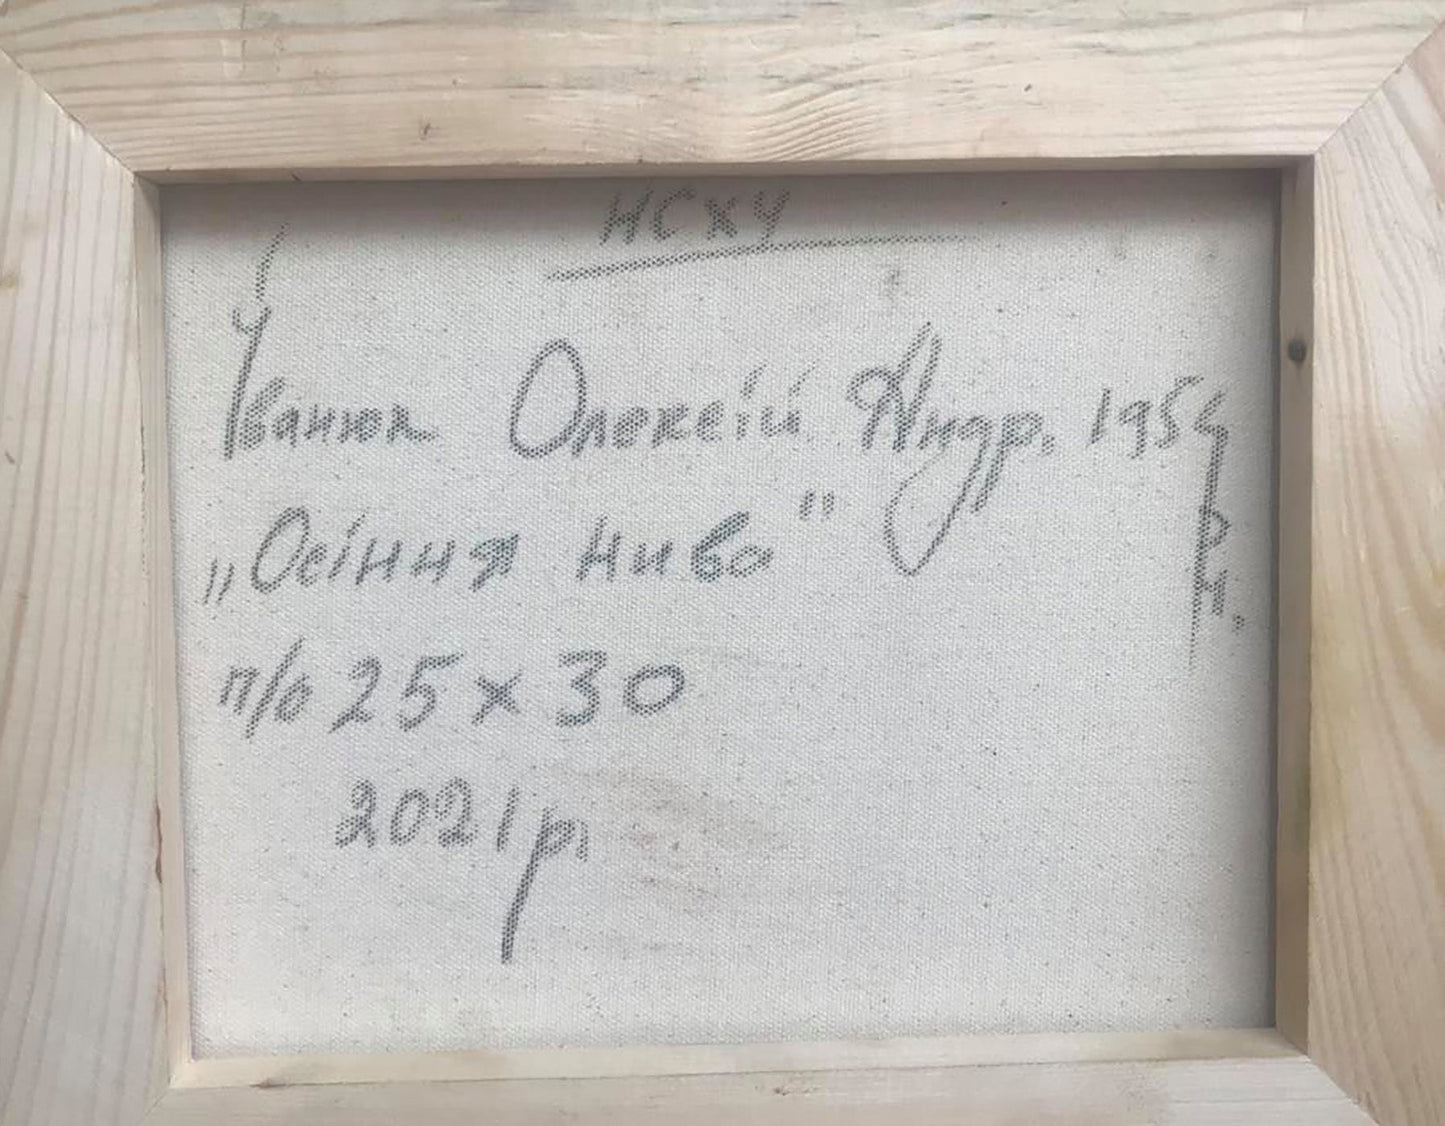 НСХУ
Іванюк Олексій Андр. 1954 р.н.
„Осіння нива"
п/о 25 x 30
2021 р.